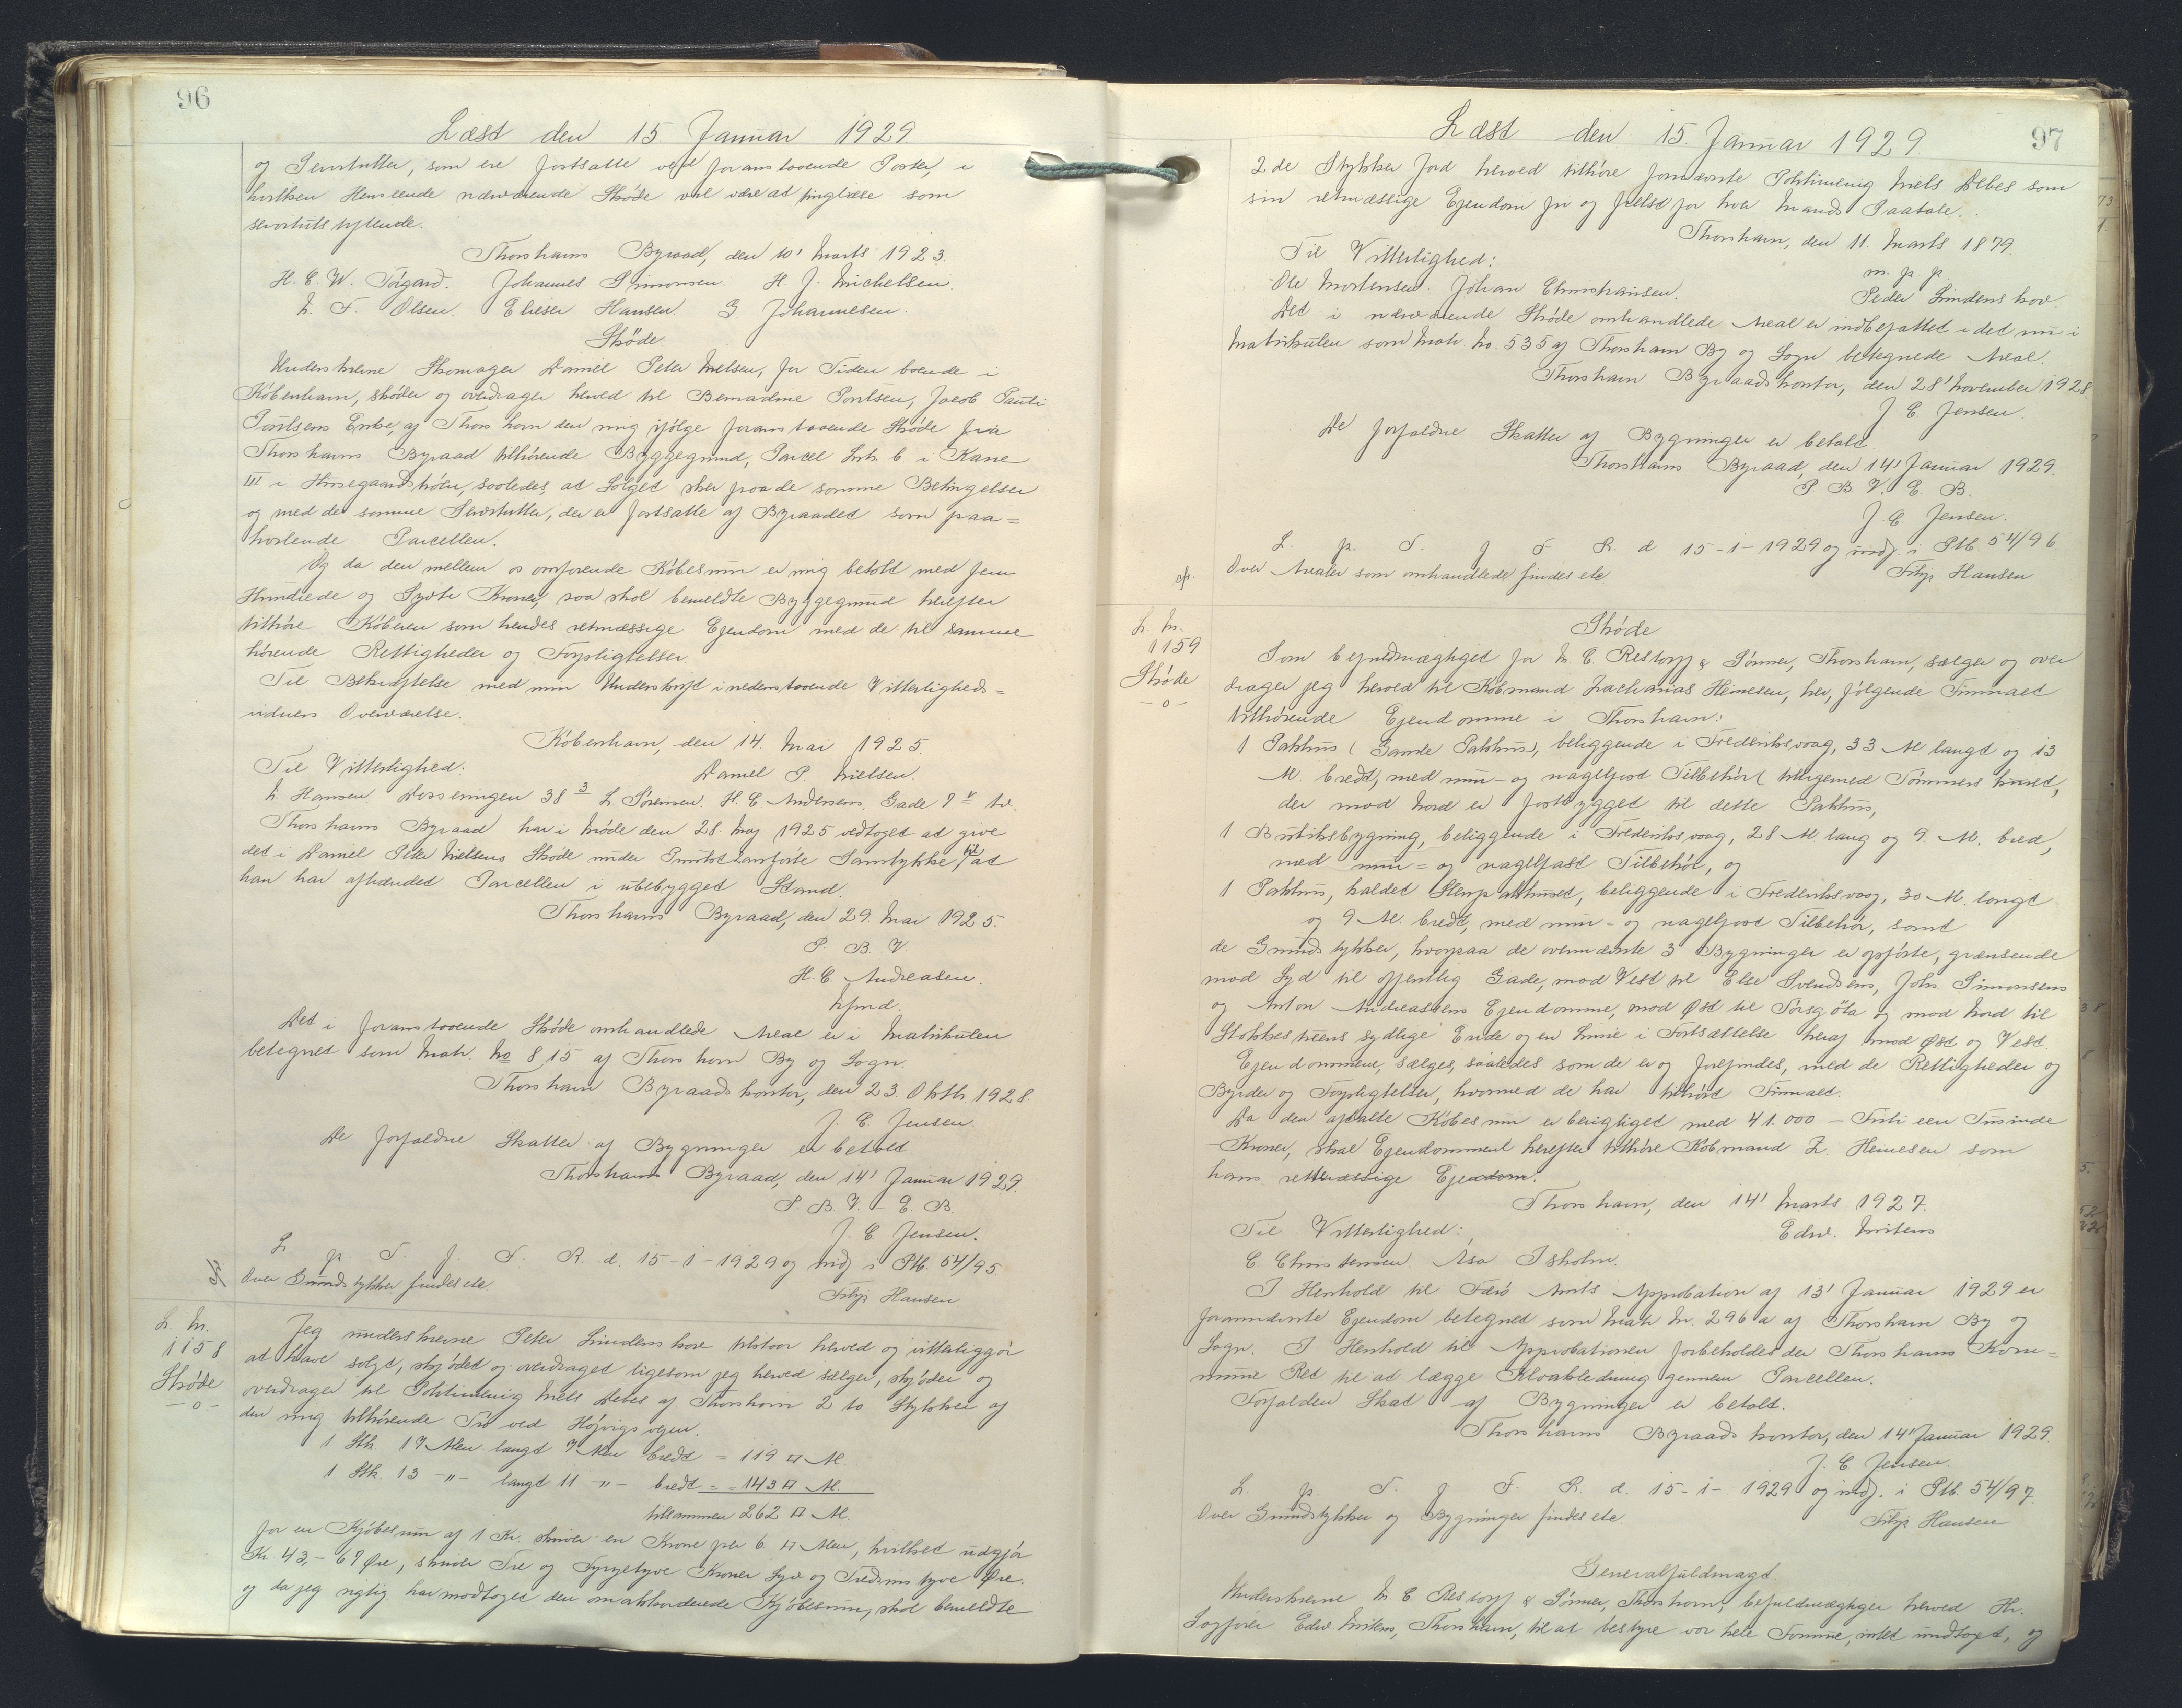 96
Læst den 15. Januar 1929
og Servitutter, som ere fortsatte ved foranstaaende Poster, i
hvilken Henseende nærværende Skøde vil være at tinglæse som
servitutstiftende.
Thorshavns Byraad, den 10' Marts 1923.
H. C. W. Tórgarð. Johannes Simonsen. H. J. Michelsen.
F. Olsen. Elieser Hansen. G Johannesen.
Skøde.
Underskrevne Skomager Daniel Peter Nielsen, for Tiden boende i
København, skøder og overdrager herved til Bernadine Poulsen, Jacob Pauli
Poulsens Enke, af Thorshavn den mig ifølge foranstaaende Skøde fra
Thorshavns Byraad tilhørende Byggegrund, Parcel Litr. b i Karre
III i Húsegaardshólu, saaledes at Salget sker paa de samme Betingelser
og med de samme Servitutter, der er fortsatte af Byraadet som paa=
hvilende Parcellen.
Og da den mellem os omforende Købesum er mig betalt med fem
Hundrede og Syvti Kroner, saa skal bemeldte Byggegrund herefter
tilhøre Køberen som hendes retmæssige Ejendom med de til samme
hørende Rettigheder og Forpligtelser.
Til Bekræftelse med min Underskrift i nedenstaaende Vitterligheds=
vidners Overværelse.
København, den 14. Mai 1925.
Til Vitterlighed: Daniel P. Nielsen.
Hansen. Dosseringen 38 3 L. Sørensen. H. C Andersens Gade 9
Thorshavns Byraad har i Møde den 28. Maj 1925 vedtaget at give
det i Daniel Peter Nielsens Skøde under Punkt anførte Samtykke til at
han har afhændet Parcellen i ubebygget Stand.
Thorshavns Byraad, den 29. Mai 1925.
P. B. V
H. C. Andreasen.
kfmd.
Det i foranstaaende Skøde omhandlede Areal er i Matrikulen
betegnet som Matr. No 815 af Thorshavn By og Sogn.
Thorshavn Byraadskontor, den 23. Oktb. 1928.
J. C. Jensen.
De forfaldne Skatter af Bygninger er betalt.
Thorshavns Byraad, den 14' Januar 1929.
P B V. E. B.
J. C Jensen.
L. p. T. f. F. R. d. 15-1-1929 og indf i Ptb. 54/95
Over Grundstykker findes ete
Filip Hansen
L. Nr.
1158
Skøde
-o-
Jeg underskrevne Peter Lindenskov tilstaar herved og vitterliggjør
at have solgt, skjødet og overdraget ligesom jeg herved sælger, skjøder og
overdrager til Politimenig Niels Debes af Thorshavn 2 to Stykker af
den mig tilhørende Trø ved Højvigsvejen.
1 Stk. 17 Alen langt 7 Alen bredt = 119 □ Al.
1 Stk. 13 -"- langt 11 -"- bredt = 143 □ Al.
tilsammen 262 □ Al.
for en Kjøbesum af 1 Kr. skriver en Krone per 6 □ Alen, hvilket udgjør
Kr. 43,- 67 Øre, skriver Tre og Fyrgetyve Kroner Syv og Tredsinstyve Øre.
og da jeg rigtig har modtaget den omakkorderede Kjøbesum, skal bemeldte
97
Læst den 15. Januar 1929
2 de Stykker Jord herved tilhøre fornævnte Politimenig Niels Debes som
sin retmæssige Ejendom fri og frelst for hver Mands Paatale.
Thorshavn, den 11. Marts 1879.
Til Vitterlighed: m. p. p.
Ole Mortensen. Johan Christiansen. Peder Lindenskov.
Det i nærværende Skøde omhandlede Areal er indbefattet i det nu i
Matrikulen som Matr. No. 535 af Thorshavn By og Sogn betegnede Areal.
Thorshavn Byraadskontor, den 28' November 1928.
J. C. Jensen.
De forfaldne Skatter af Bygninger er betalt.
Thorshavns Byraad, den 14' Januar 1929.
P B V. E. B.
J C. Jensen.
L. p. T. f F R. d 15-1-1929 og indf. i Ptb 54/96
Over Arealer som omhandlede findes ete
Filip Hansen
L. Nr.
1159
Skøde
-o-
Skøde
Som befuldmægtiget for M. C. Restorff & Sønner, Thorshavn, sælger og over
drager jeg herved til Købmand Zacharias Heinesen, her, følgende Firmaet
tilhørende Ejendomme i Thorshavn:
1 Pakhus (Gamle Pakhus), beliggende i Frederiksvaag, 33 Al langt og 13
Al. bredt, med mur- og nagelfast Tilbehør (tilligemed Tømmershuset,
der mod Nord er fastbygget til dette Pakhus,
1 Butiksbygning, beliggende i Frederiksvaag, 28 Al lang og 9 Al. bred,
med mur= og nagelfast Tilbehør, og
1 Pakhus, kaldet Stenpakhuset, beliggende i Frederiksvaag, 30 Al. langt
og 9 Al. bredt, med mur- og nagelfast Tilbehør, samt
de Grundstykker, hvorpaa de ovennævnte 3 Bygninger er opførte, grænsende
mod Syd til offentlig Gade, mod Vest til Else Svendsens, Johs. Simonsens
og Anton Andreassens Ejendomme, mod Øst til Tórsgøta og mod Nord til
Stokkastuens sydlige Ende og en Linie i Fortsættelse heraf mod Øst og Vest.
Ejendommene, sælges, saaledes som de er og forefindes, med de Rettigheder og
Byrder og Forpligtelser, hvormed de har tilhørt Firmaet.
Da den aftalte Købesum er berigtiget med 41.000 - Firti een Tusinde
Kroner, skal Ejendommene herefter tilhøre Købmand Z. Heinesen som
hans retmæssige Ejendom.
Thorshavn, den 14' Marts 1927.
Til Vitterlighed: Edw. Mitens
C Christensen Asa Isholm.
I Henhold til Færø Amts Approbation af 13' Januar 1929 er
forannævnte Ejendom betegnet som Matr. Nr. 296 a af Thorshavn By og
Sogn. I Henhold til Approbationen forbeholdes der Thorshavns Kom=
mune Ret til at lægge Kloakledning gennem Parcellen.
Forfalden Skat af Bygninger er betalt.
Thorshavns Byraadskontor, den 14' Januar 1929.
J. C. Jensen.
L p. T. f F. R. d. 15-1-1929 og indf. i Ptb. 54/97
Over Grundstykker og Bygninger findes ete
Filip Hansen
Generalfuldmagt.
Underskrevne M C. Restorff & Sønner, Thorshavn, befuldmægtiger herved Hr.
Sagfører Edw Mitens, Thorshavn, til at bestyre vor hele Formue, intet undtaget, og